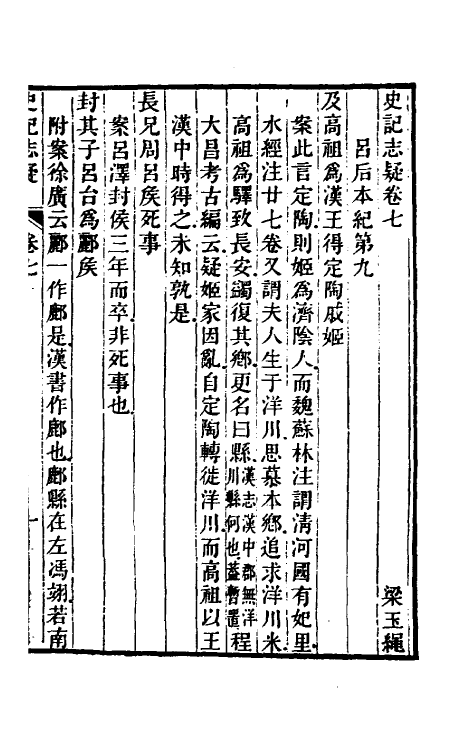 史記志疑卷七
梁玉繩
呂后本紀第九
及高祖爲漢王得定陶戚姬
案此言定陶則姬爲濟陰人而魏蘇林注謂清河國有妃里
水經注廿七卷又謂夫人生于洋川思慕本鄉追求洋川米
高祖爲驛致長安蠲復其鄉更名曰縣漢志漢中郡無洋川縣何也蓋暫置程
大昌考古編云疑姬家因亂自定陶轉徙洋川而高祖以王
漢中時得之未知孰是
長兄周呂侯死事
案呂澤封侯三年而卒非死事也
封其子呂台爲酈侯
附案徐廣云酈一作鄜是漢書作鄜也鄜縣在左馮翊若南
史記志疑
卷七
一